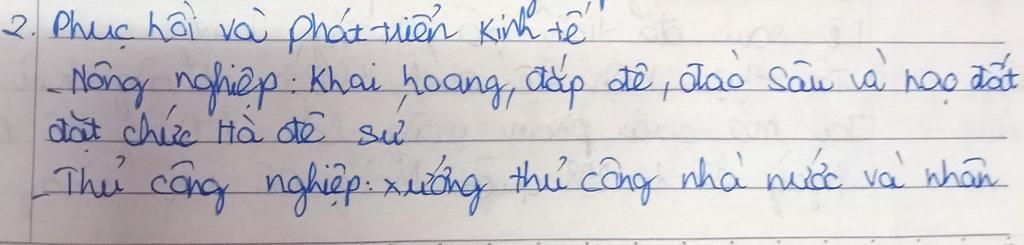 2. Phục hồi và phát triển kinh tế
- Nông nghiệp: Khai hoang, đắp đê, đào sâu và nạo đất
đặt chức Hà đê sứ
- Thủ công nghiệp: xưởng thủ công nhà nước và nhân